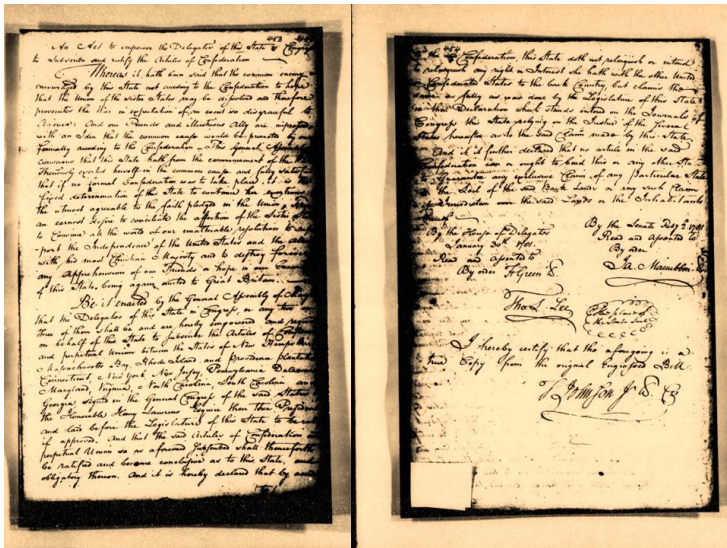 453
An Act to empower the Delegates of this State in Congress
to subscribe and ratify the Articles of Confederation
Whereas it hath been said that the common enemy
encouraged by this State not acceding to the Confederation to hope
that the Union of the Sister States may be dissolved and therefore
prosecutes the War in expectation of an event so disgraceful to
America: And our Friends and illustrious Ally are impressed
with an Idea that the common cause would be promoted by
formally acceding to the Confederation This General Assembly
conscious that this State hath from the commencement of the War
strenuously exerted herself in the common cause and fully satisfied
that if no formal Confederation was to take place, it is the
fixed determination of this State to continue her exertions
the utmost agreeable to the faith pledged in the Union; from
an earnest desire to conciliate the affection of the Sister States
to Convince all the world of our unalterable resolution to sup
port the Independence of the United States and the
with his most Christian Majesty and to destroy forever
any apprehension of our Friends or hope in our Enemies
of this State being again united to Great Britain.
Be it enacted by the General Assembly of
that the Delegates of this State in Congress or any two or
three of them shall be and are hereby empowered and
on behalf of this State to subscribe the Articles of
and perpetual Union between the States of New Hampshire
Massachusetts Bay Rhode Island and Providence Plantations
Connecticut New York New Jersey Pennsylvania Delaware
Maryland, Virginia, North Carolina South Carolina and
Georgia signed in the General Congress of the said States
the Honorable Henry Laurens Esquire their then President
and laid before the Legislature of this State to be
if approved. And that the said Articles of Confederation
perpetual Union so as aforesaid subscribed shall thenceforth
be ratified and become conclusive as to this State, and
obligatory thereon. And it is hereby declared that by
454
the Confederation, this State doth not relinquish or intend
to relinquish any right or Interest she hath with the other United
Confederated States to the back Country but claims the
same as fully as was done by the Legislature of this State
in this Declaration which stands entered on the Journals of
Congress this State relying on the Justice of the Several
States hereafter as to the said Claim made by this State
And it is further declared that no article in the said
Confederation can or ought to bind this or any other State
to Guarantee any exclusive Claim of any Particular State
to the Soil of the said Back Lands or any such Claim
of Jurisdiction over the said Lands or the Inhabitants
thereof
By the House of Delegates
January 30th 1781.
Read and assented to
By order F Green
By the Senate Feby 2d 1781
Read and assented to
By order
Ja. Maccubbin
Tho S. Lee
The place of
the State Seal
I hereby certify that the aforegoing is a
true Copy from the original Engrossed Bill
T Johnson Jr